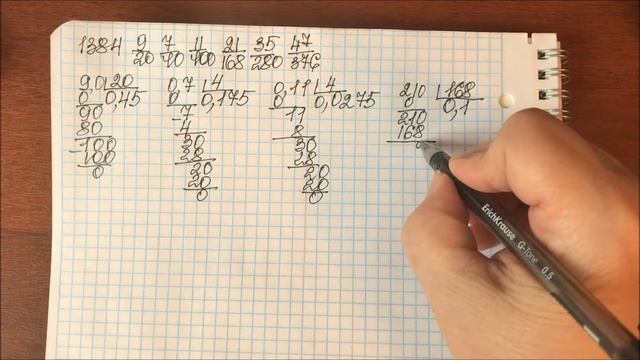 1384 9/20 7/40 11/400 21/168 35/280 47/376
9,0 20 0,7 4 0,11 4 210 168
0 0,45 0 0,175 0 0,0275 0 0,1
90 7 11 210
80 4 8 168
-100 30 30
100 28 28
0 20 20
20 20
0 0
ErichKrause G-Tone 0.5